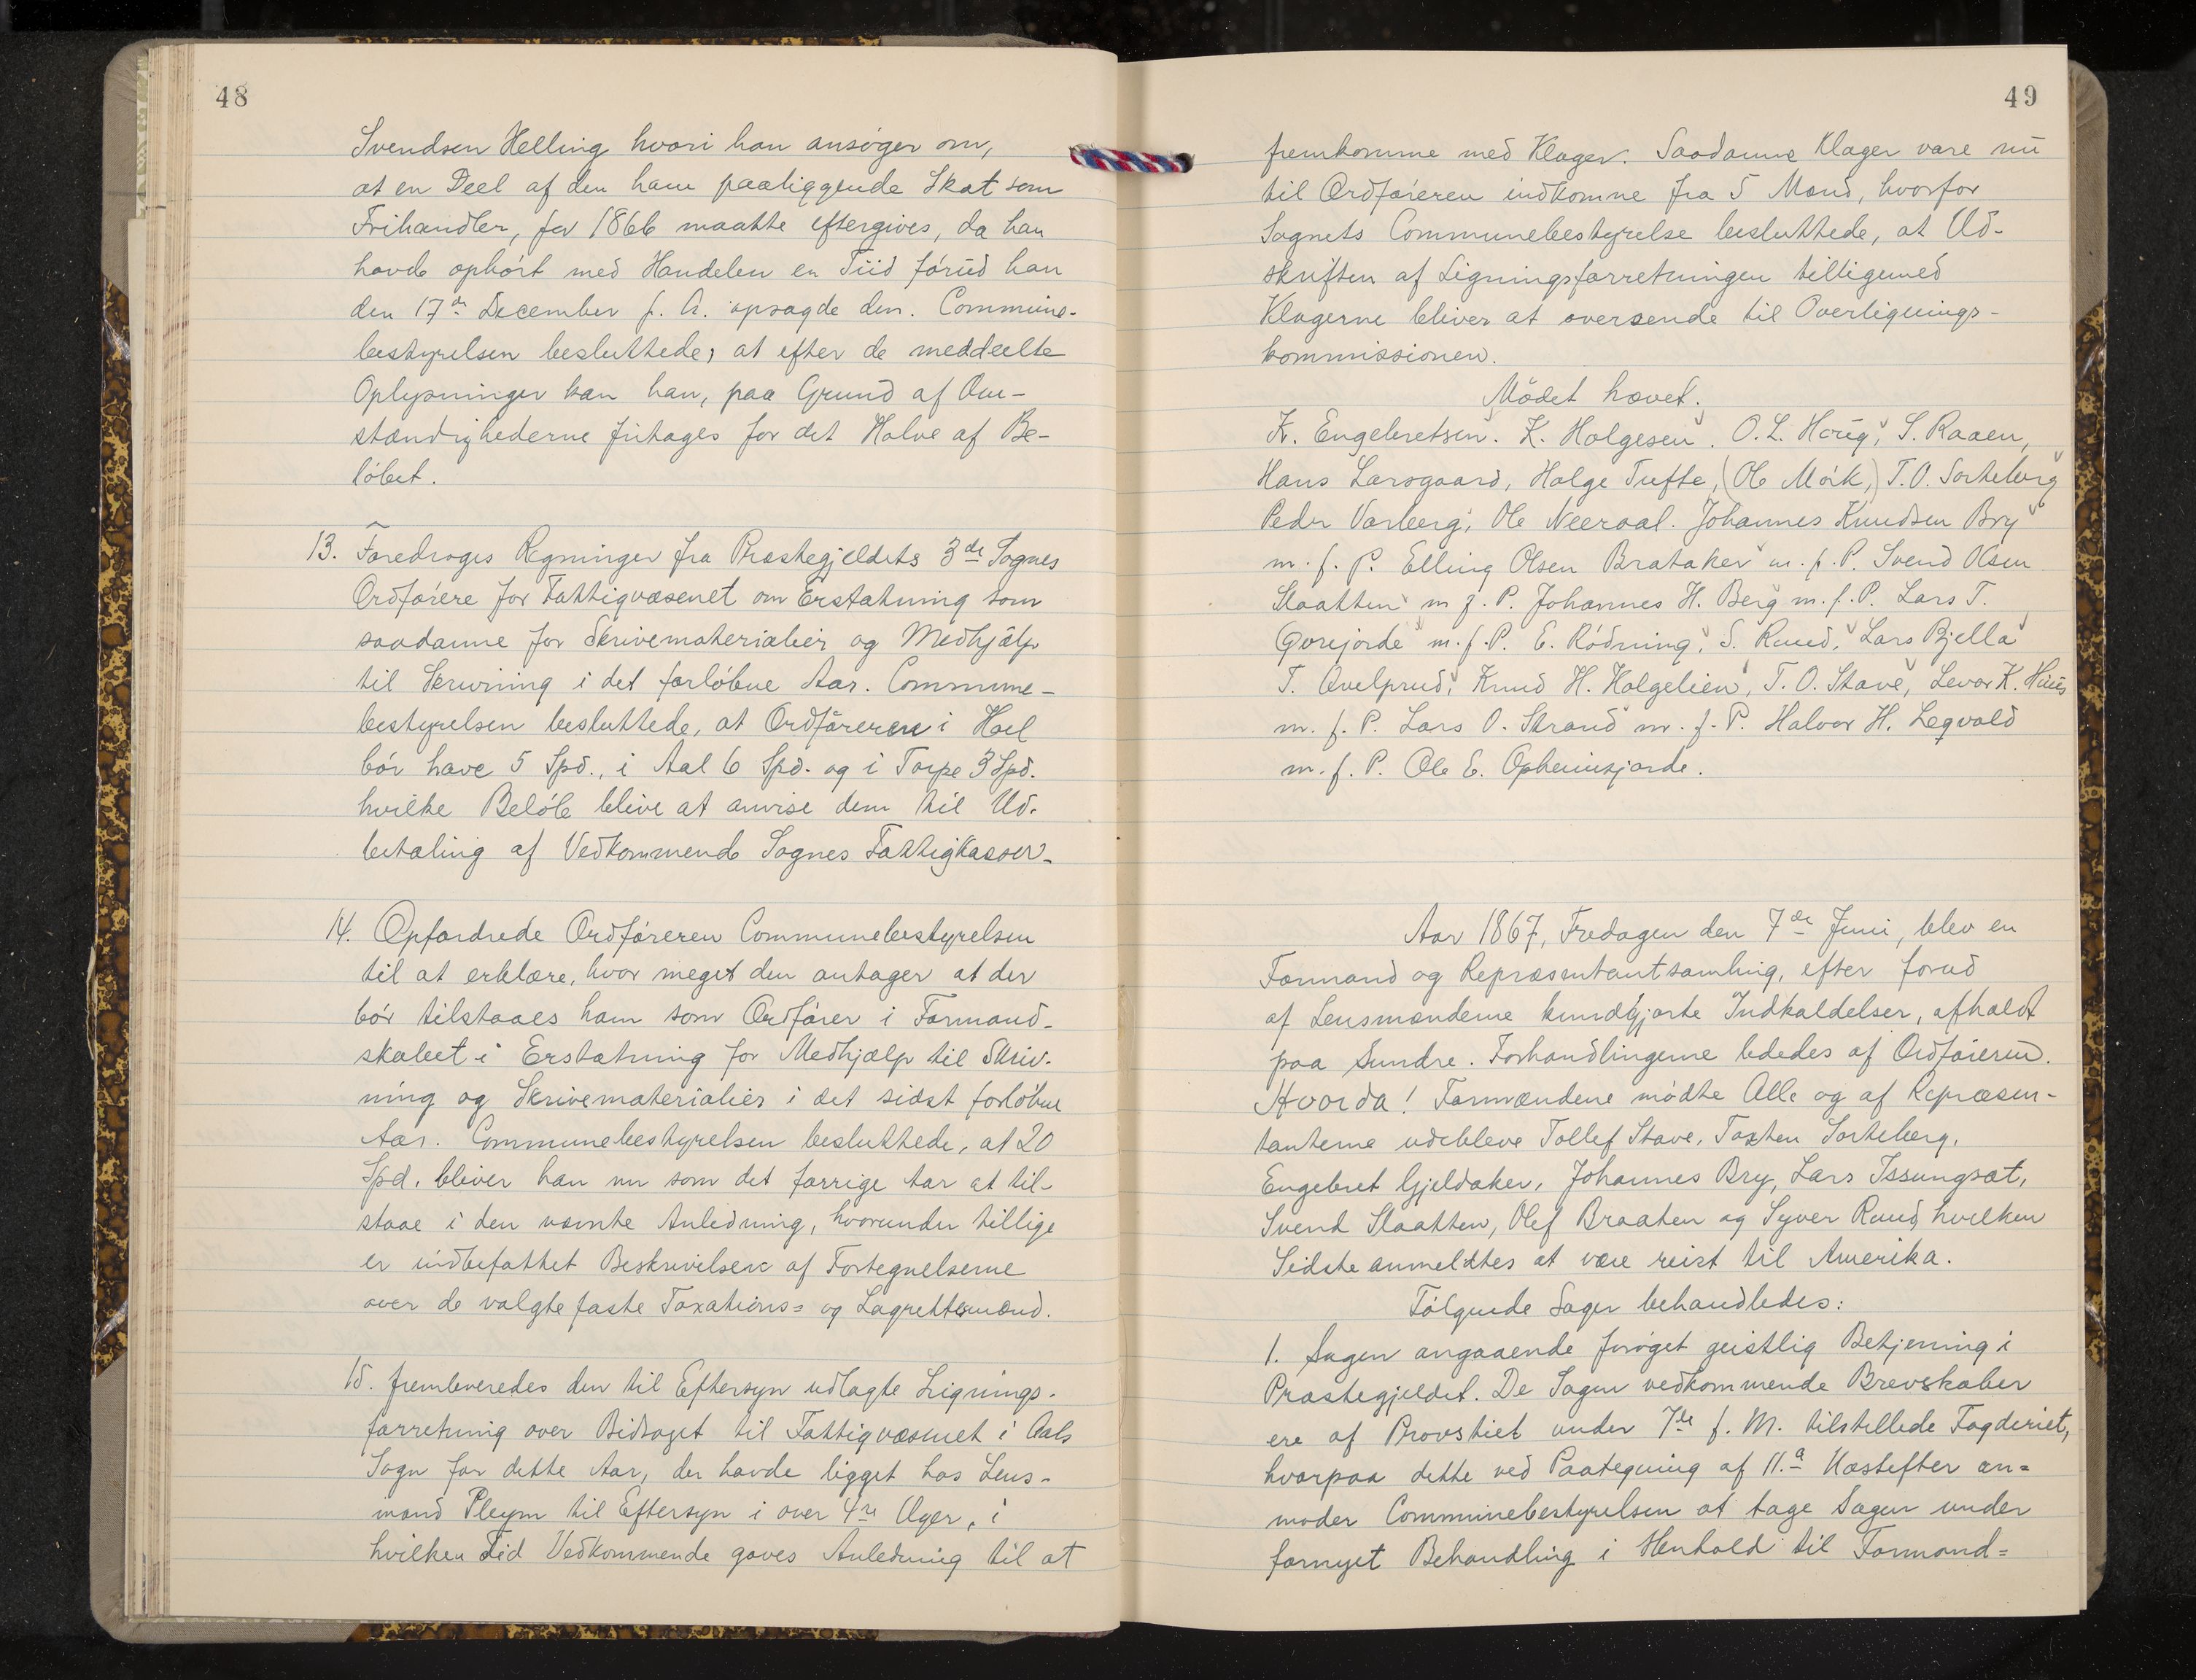 48
Svendsen Helling hvori han ansøger om,
at en Deel af den ham paaliggende Skat som
Frihandler, for 1866 maatte eftergives, da han
havde ophørt med Handelen en Tiid førud han
den 17de December f. A. opsagde den. Commune-
bestyrelsen besluttede, at efter de meddeelte
Oplysninger kan han, paa Grund af Om-
stændighederne fritages for det Halve af Be-
løbet.
13. Foredroges Regninger fra Præstegjeldets 3de Sognes
Ordførere for Fattigvæsenet om Erstatning som
saadanne for Skrivematerialier og Medhjælp
til Skrivning i det forløbne Aar. Commune-
bestyrelsen besluttede, at Ordføreren i Hoel
bør have 5 Spd., i Aal 6 Spd. og i Torpe 3 Spd.
hvilke Beløb blive at anvise dem til Ud-
betaling af Vedkommende Sognes Fattigkasser.
14. Opfordrede Ordføreren Communebestyrelsen
til at erklære, hvor meget den antager at der
bør tilstaaes ham som Ordfører i Formand-
skabet i Erstatning for Medhjælp til Skriv-
ning og Skrivematerialier i det sidst forløbne
Aar. Communebestyrelsen besluttede, at 20
Spd. bliver han nu som det forrige Aar at til-
staae i den nævnte Anledning, hvorunder tillige
er indbefattet Beskrivelsen af Fortegnelserne
over de valgte faste Taxations= og Lagrettesmænd.
15. fremleveredes den til Eftersyn udlagte Lignings-
forretning over Bidraget til Fattigvæsenet i Aals
Sogn for dette Aar, der havde ligget hos Lens-
mand Pleym til Eftersyn i over 4re Uger, i
hvilken Tid Vedkommende gaves Anledning til at
49
fremkomme med Klager. Saadanne Klager vare nu
til Ordføreren indkomne fra 5 Mænd, hvorfor
Sognets Communebestyrelse besluttede, at Ud-
skriften af Ligningsforretningen tilligemed
Klagerne bliver at oversende til Overlignings-
kommissionen.
Mødet hævet.
K. Engebretsen. K. Holgesen. O. L. Horeg, S. Raaen,
Hans Larsgaard, Holge Tufte, (Ole Mørk,) T. O. Sorteberg
Peder Varberg, Ole Neeraal. Johannes Knudsen Bry
m. f. P. Elling Olsen Brataker m. f. P. Svend Olsen
Slaatten m. f. P. Johannes H. Berg m. f. P. Lars T.
Gurejorde m. f. P. E. Rødning, S. Ruud, Lars Bjella
T. Qvelprud, Knud H. Holgelien, T. O. Stave, Levor K. Huus
m. f. P. Lars O. Strand m. f. P. Halvor H. Legvold
m. f. P. Ole E. Opheimsjorde.
Aar 1867, Fredagen den 7de Juni, blev en
Formand og Repræsentantsamling, efter forud
af Lensmændene kundgjorte Indkaldelser, afholdt
paa Sundre. Forhandlingerne lededes af Ordføreren.
Hvorda! Formændene mødte Alle og af Repræsen-
tanterne udebleve Tollef Stave, Tosten Sorteberg,
Engebret Gjeldaker, Johannes Bry, Lars Issungsæt,
Svend Slaatten, Olef Braaten og Syver Ruud, hvilken
Sidste anmeldtes at være reist til Amerika.
Følgende Sager behandledes:
1. Sagen angaaende forøget geistlig Betjening i
Præstegjeldet. De Sagen vedkommende Brevskaber
ere af Provstiet under 7de f. M. tilstillede Fogderiet,
hvorpaa dette ved Paategning af 11.te Næstefter an=
moder Communebestyrelsen at tage Sagen under
fornyet Behandling i Henhold til Formand=